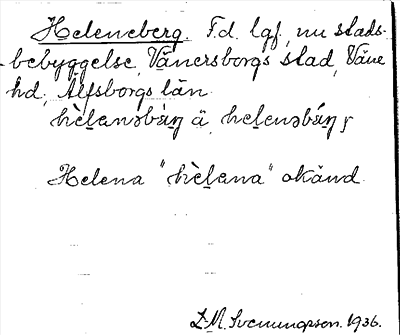 Heleneberg. F.d. lgf, nu stads-
bebyggelse, Vänersborgs stad, Väne
hd, Älfsborgs län.
Helena "hèlana" okänd.
L.M. Svenungsson. 1936.